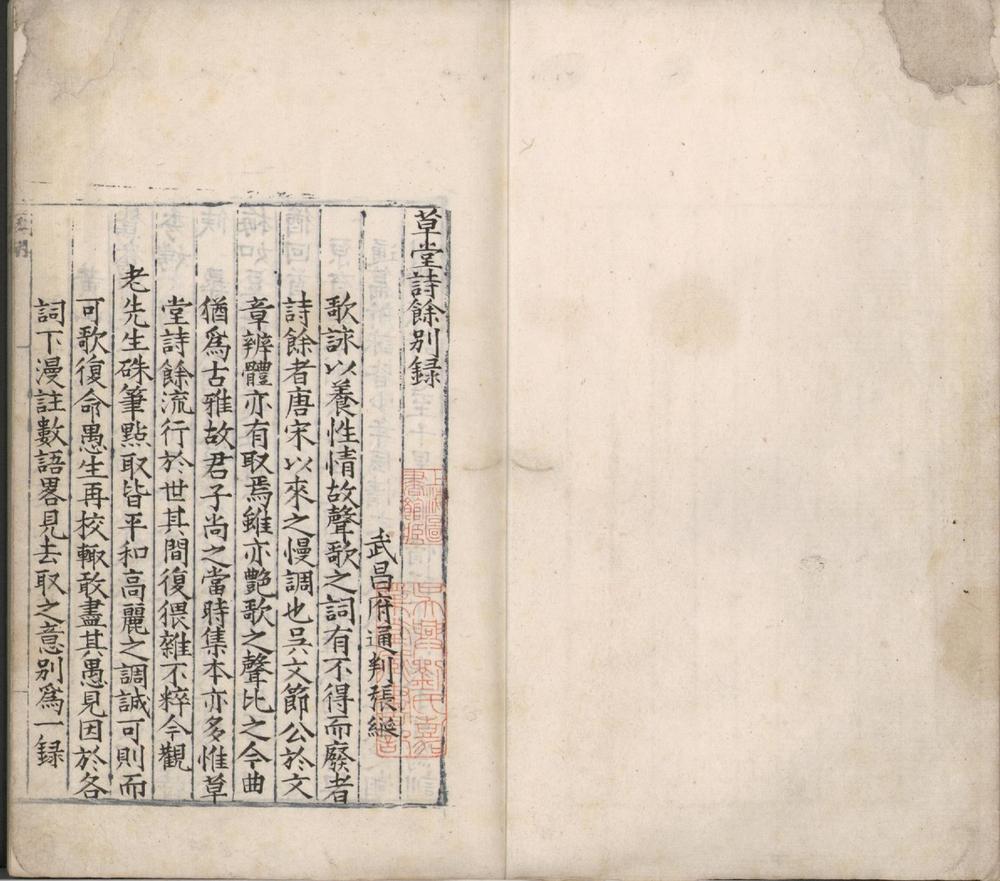 草堂詩餘别録
武昌府通判張綖
歌詠以養性情故聲歌之詞有不得而廢者
詩餘者唐宋以來之慢調也吳文節公於文
章辨體亦有取焉雖亦艶歌之聲比之今曲
猶爲古雅故君子尚之當時集本亦多惟草
堂詩餘流行於世其間復猥雜不粹今觀
老先生硃筆點取皆平和高麗之調誠可則而
可歌復命愚生再校輙敢盡其愚見因於各
詞下漫註數語畧見去取之意别爲一録
上海圖書館藏
吳興劉氏嘉業堂藏書記